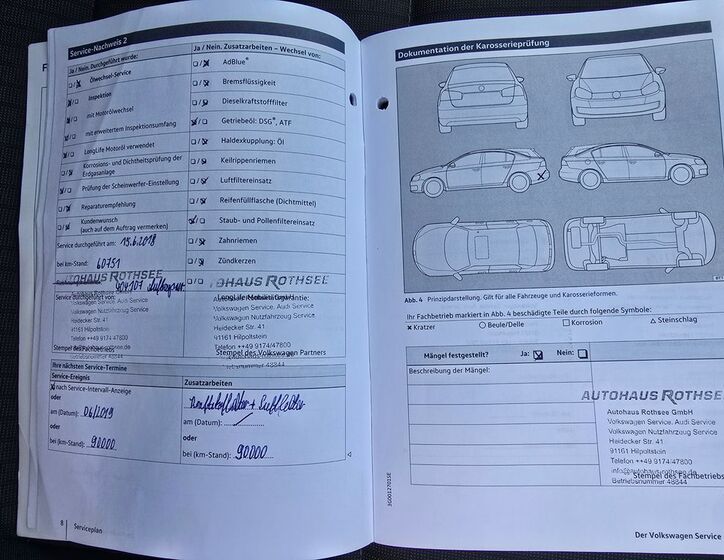 Service-Nachweis 2
Ja / Nein. Durchgeführt wurde:
Ölwechsel-Service
Inspektion
mit Motorölwechsel
mit erweitertem Inspektionsumfang
LongLife Motoröl verwendet
Korrosions- und Dichtheitsprüfung der
Erdgasanlage
Prüfung der Scheinwerfer-Einstellung
Reparaturempfehlung
Kundenwunsch
(auch auf dem Auftrag vermerken)
Service durchgeführt am: 19.6.2018
bei km-Stand: 60751
AUTOHAUS ROTHSEE
Service durchgeführt von:
Volkswagen Service, Audi Service
Volkswagen Nutzfahrzeug Service
Heidecker Str. 41
91161 Hilpoltstein
Telefon ++49 9174/47800
Stempel des Fachbetriebs
Ja / Nein. Zusatzarbeiten – Wechsel von:
AdBlue®
Bremsflüssigkeit
Dieselkraftstofffilter
Getriebeöl: DSG®, ATF
Haldexkupplung: Öl
Keilrippenriemen
Luftfiltereinsatz
Reifenfüllflasche (Dichtmittel)
Staub- und Pollenfiltereinsatz
Zahnriemen
Zündkerzen
AUTOHAUS ROTHSEE
Volkswagen Service, Audi Service
Volkswagen Nutzfahrzeug Service
Heidecker Str. 41
91161 Hilpoltstein
Telefon ++49 9174/47800
Stempel des Volkswagen Partners
Betriebsnummer 48844
Ihre nächsten Service-Termine
Service-Ereignis
nach Service-Intervall-Anzeige
oder
am (Datum): 06/2019
oder
bei (km-Stand): 90000
Zusatzarbeiten
am (Datum):
oder
bei (km-Stand): 90000
8
Serviceplan
Dokumentation der Karosserieprüfung
Abb. 4 Prinzipdarstellung. Gilt für alle Fahrzeuge und Karosserieformen.
Ihr Fachbetrieb markiert in Abb. 4 beschädigte Teile durch folgende Symbole:
× Kratzer ○ Beule/Delle □ Korrosion △ Steinschlag
Mängel festgestellt? Ja: Nein:
Beschreibung der Mängel:
AUTOHAUS ROTHSEE
Autohaus Rothsee GmbH
Volkswagen Service, Audi Service
Volkswagen Nutzfahrzeug Service
Heidecker Str. 41
91161 Hilpoltstein
Telefon ++49 9174/47800
info@autohaus-rothsee.de
Stempel des Fachbetriebs
Betriebsnummer 48844
3G0012701SE
Der Volkswagen Service